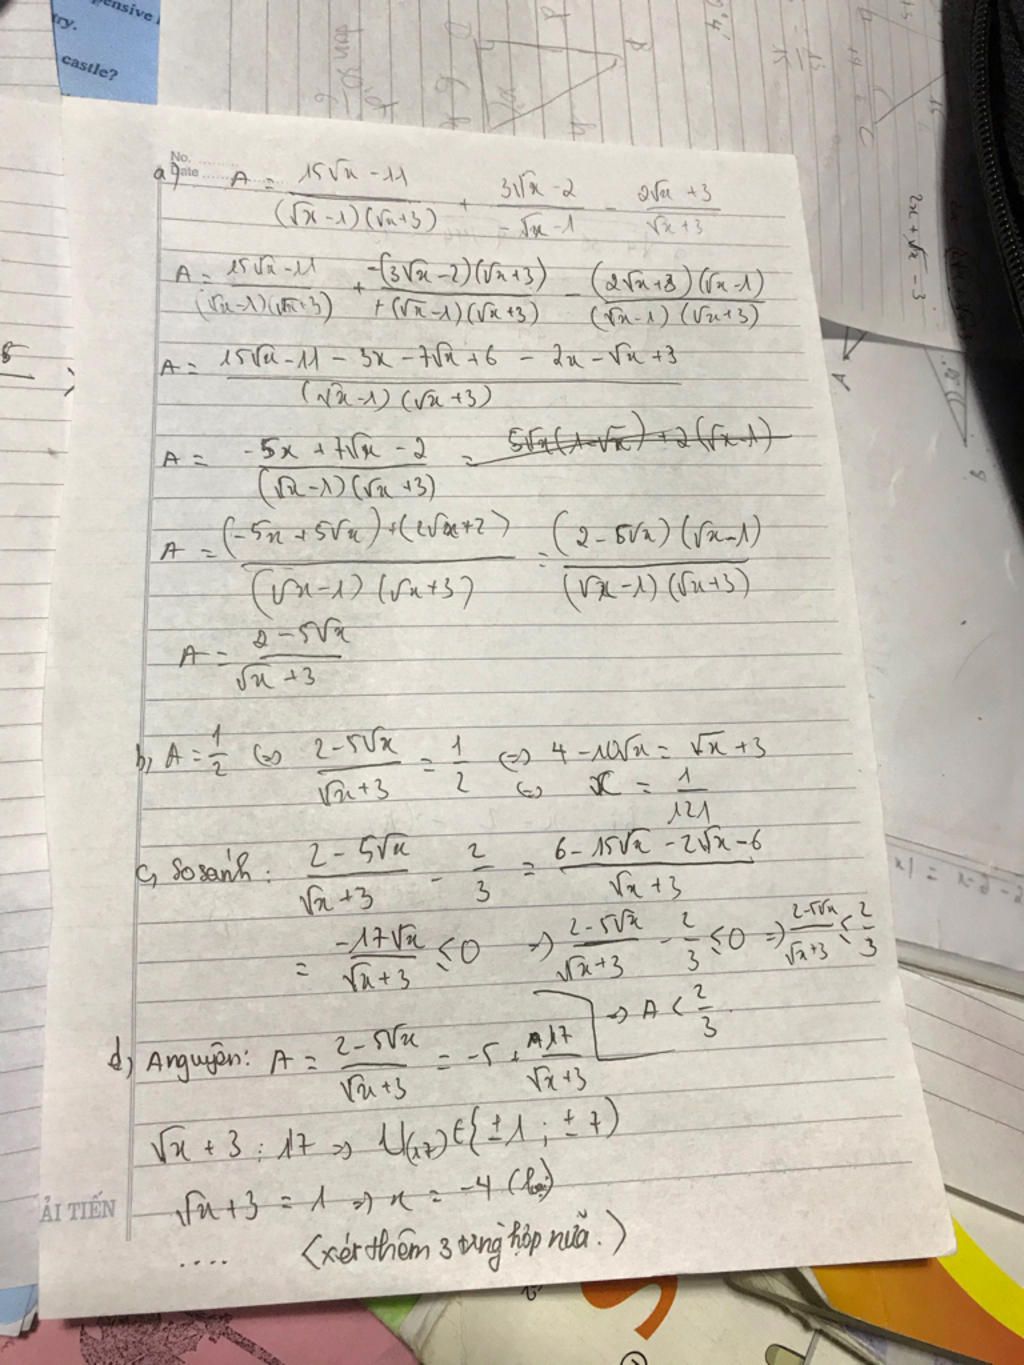 ensive
ry.
castle?
No.
Date
a) A = \frac{15√x - 11}{(√x - 1)(√x + 3)} + \frac{3√x - 2}{-√x - 1} - \frac{2√x + 3}{√x + 3}
A = \frac{15√x - 11}{(√x - 1)(√x + 3)} + \frac{-(3√x - 2)(√x + 3)}{+(√x - 1)(√x + 3)} - \frac{(2√x + 3)(√x - 1)}{(√x - 1)(√x + 3)}
A = \frac{15√x - 11 - 3x - 7√x + 6 - 2x - √x + 3}{(√x - 1)(√x + 3)}
A = \frac{-5x + 7√x - 2}{(√x - 1)(√x + 3)} = 5√x(1 - √x) + 2(√x - 1)
A = \frac{(-5x + 5√x) + (2√x + 2)}{(√x - 1)(√x + 3)} = \frac{(2 - 5√x)(√x - 1)}{(√x - 1)(√x + 3)}
A = \frac{2 - 5√x}{√x + 3}
b, A = \frac{1}{2} ⇔ \frac{2 - 5√x}{√x + 3} = \frac{1}{2} ⇔ 4 - 10√x = √x + 3
⇔ x = \frac{1}{121}
c, So sánh: \frac{2 - 5√x}{√x + 3} - \frac{2}{3} = \frac{6 - 15√x - 2√x - 6}{√x + 3}
= \frac{-17√x}{√x + 3} ≤ 0 ⇒ \frac{2 - 5√x}{√x + 3} - \frac{2}{3} ≤ 0 ⇒ \frac{2 - 5√x}{√x + 3} ≤ \frac{2}{3}
⇒ A < \frac{2}{3}
d, A nguyên: A = \frac{2 - 5√x}{√x + 3} = -5 + \frac{17}{√x + 3}
√x + 3 : 17 ⇒ Ư(17) ∈ {±1 ; ±7)
√x + 3 = 1 ⇒ x = -4 (loại)
.... (xét thêm 3 trường hợp nữa.)
ẢI TIẾN
2x + √x - 3
A
B